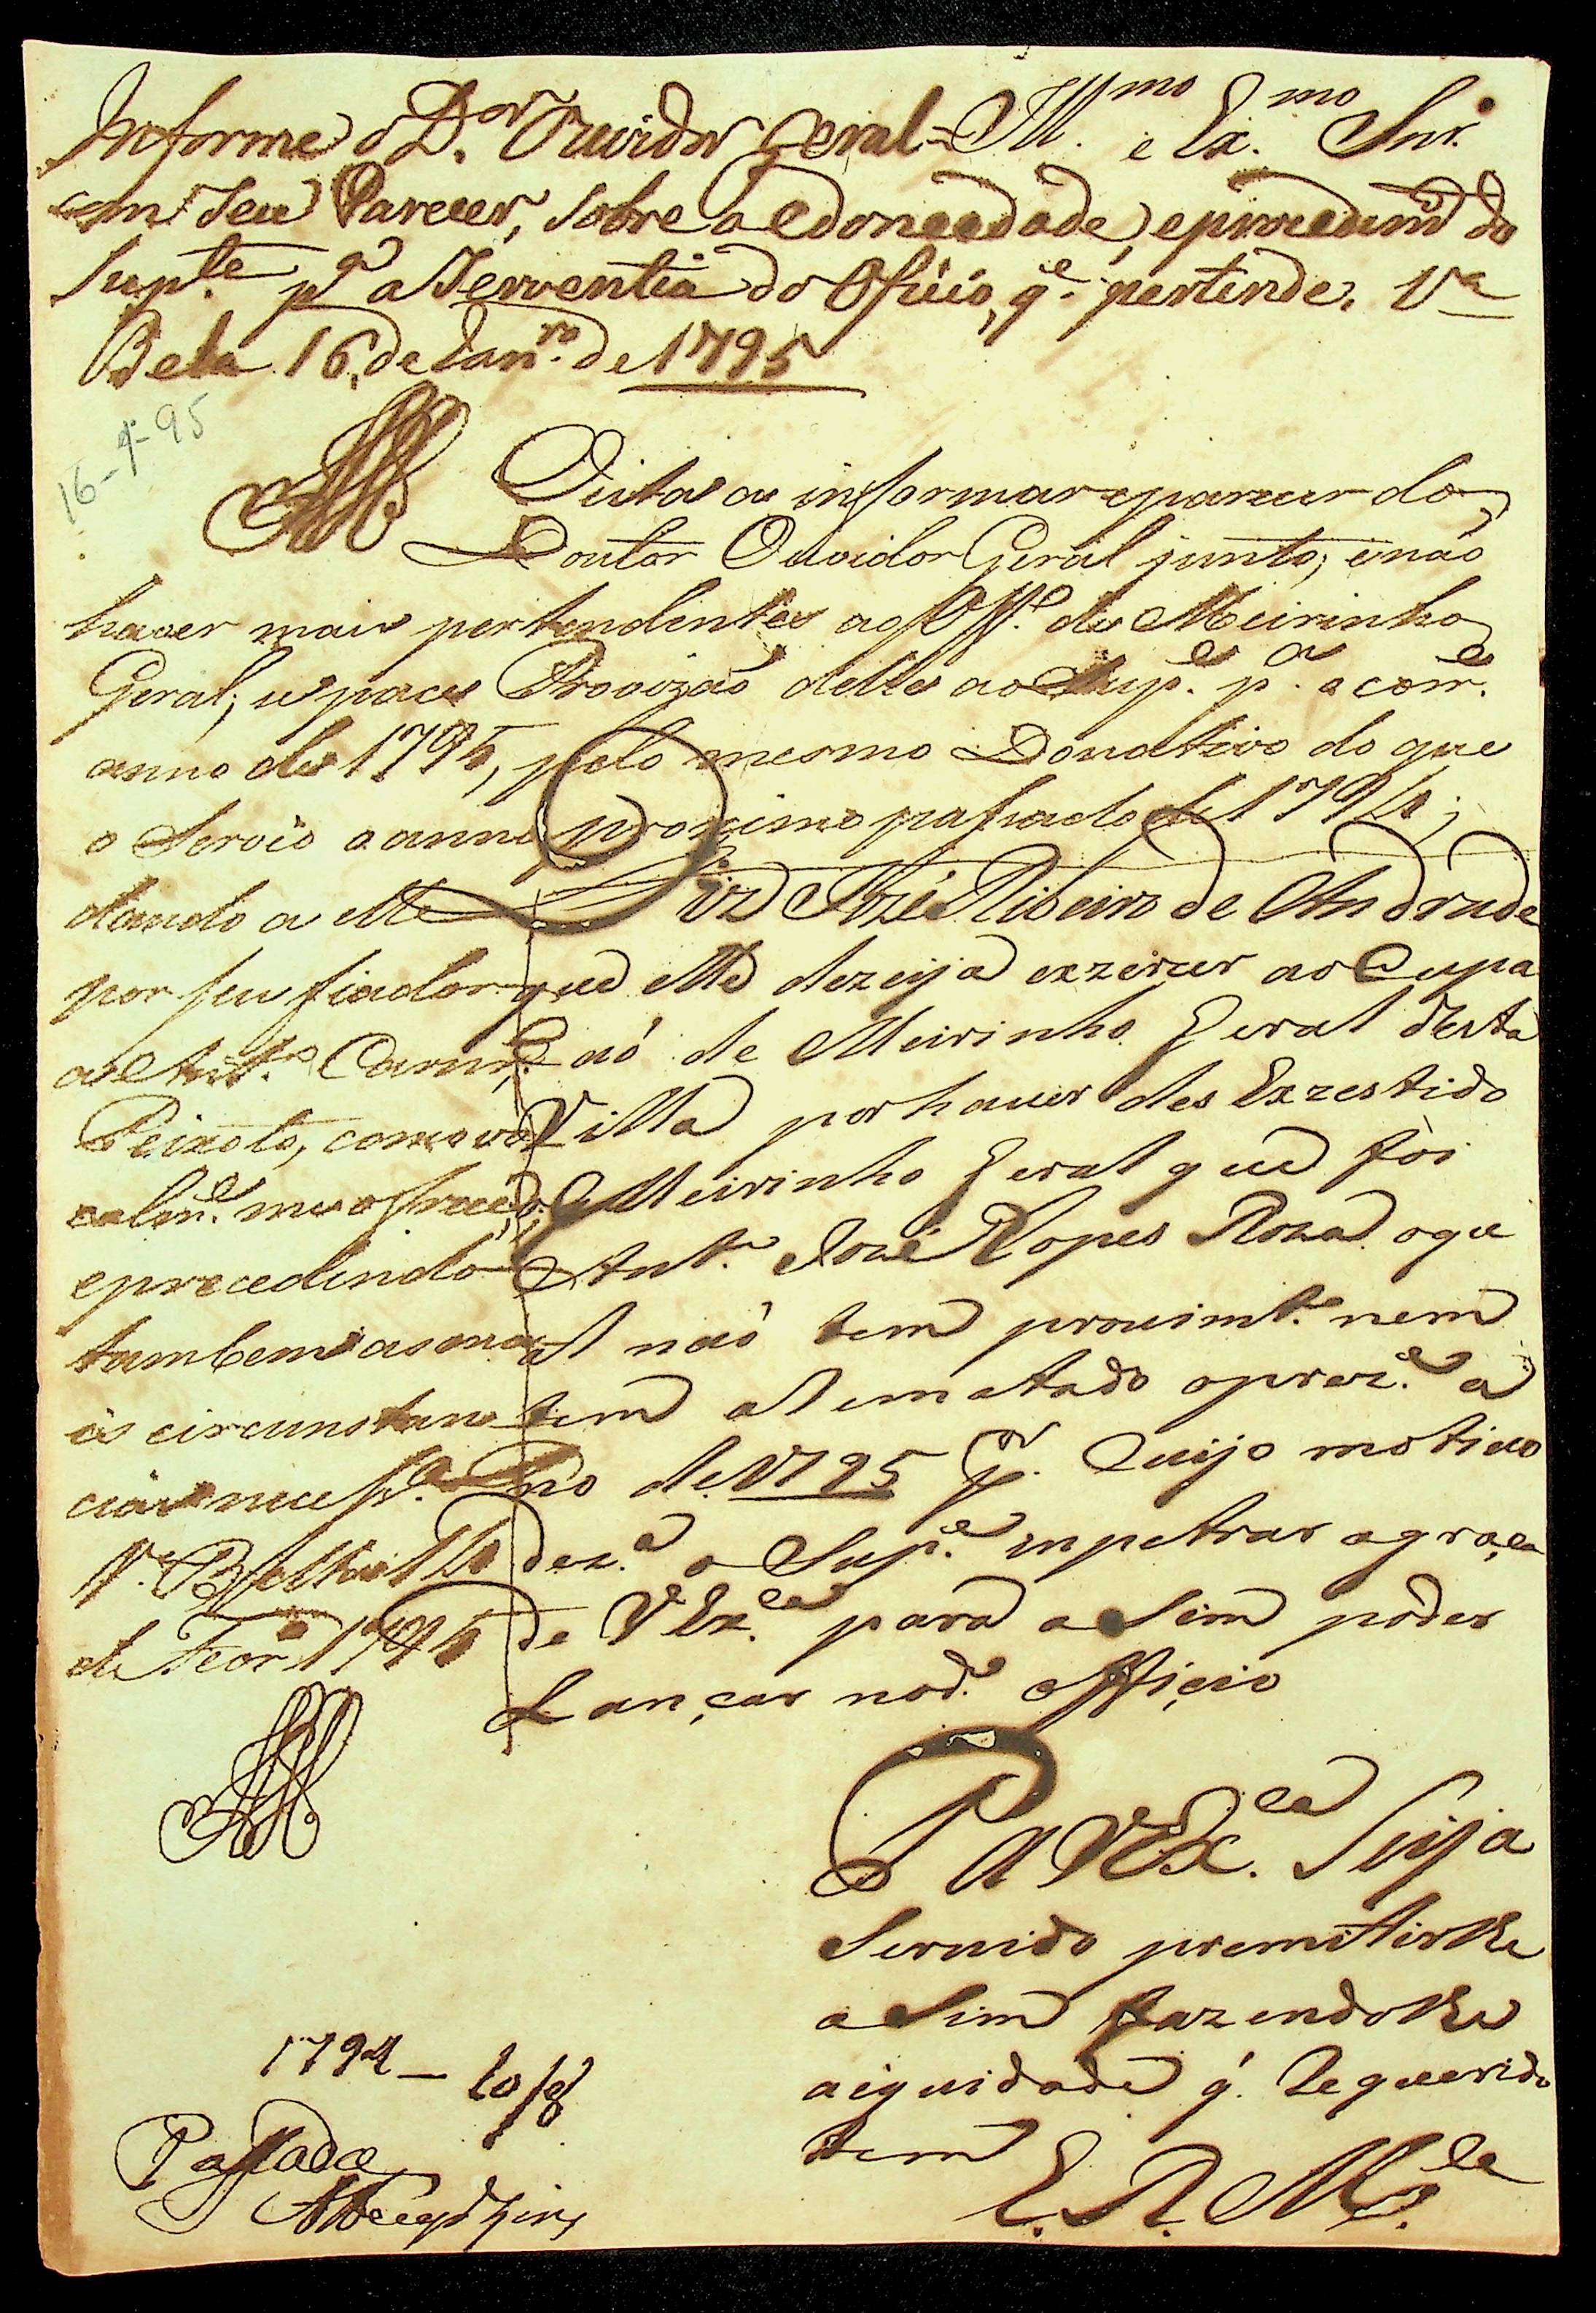 Informe o D.or Ouvidor Geral = Ill.mo e Ex.mo Snr.
com seu Parecer, sobre a edoneedade, e procedim.to do
Sup.te p.a a Serventia do Oficio, q.e pertende. V.a
Bela 16, de Jan.ro de 1795
16-1-95
Vistas as informar e parecer do
Doutor Ouvidor Geral junto; e não
haver mais pertendentes ao Off.o de Meirinho
Geral; se passe Provizão delle ao Sup.e p.a o corr.e
anno de 1795, pelo mesmo Donativo do que
o Servio o anno proximo passado de 1794;
dando a elle
por seu fiador
a Ant.o Carn.ro
Peixoto, como vo
calm.e me offrece,
e precedendo
tambem as ma
is circunstan
cias necess.as
V.a Bella 14
de Fevr.o 1795
Diz José Ribeiro de Andrade
que elle dezeija exzercer ao Cupa
caó de Meirinho Geral desta
Villa por haver des Exzestido
o Meirinho Geral que foi
Ant.o José Lopes Roza o qu
al naó tem provimt.o nem
tem a Rematado o prez.e a
no de 1795 p.r Cuijo motivo
dez.a o Sup.e inpetrar a graça
de V Ex.ca para aSim poder
Lançar no d.o officio
P A V Ex.ca Seija
Servido premitirlhe
aSim fazendolhe
aiguidade q. Requerido
tem
E. R. M.ce
1794 —
Passada